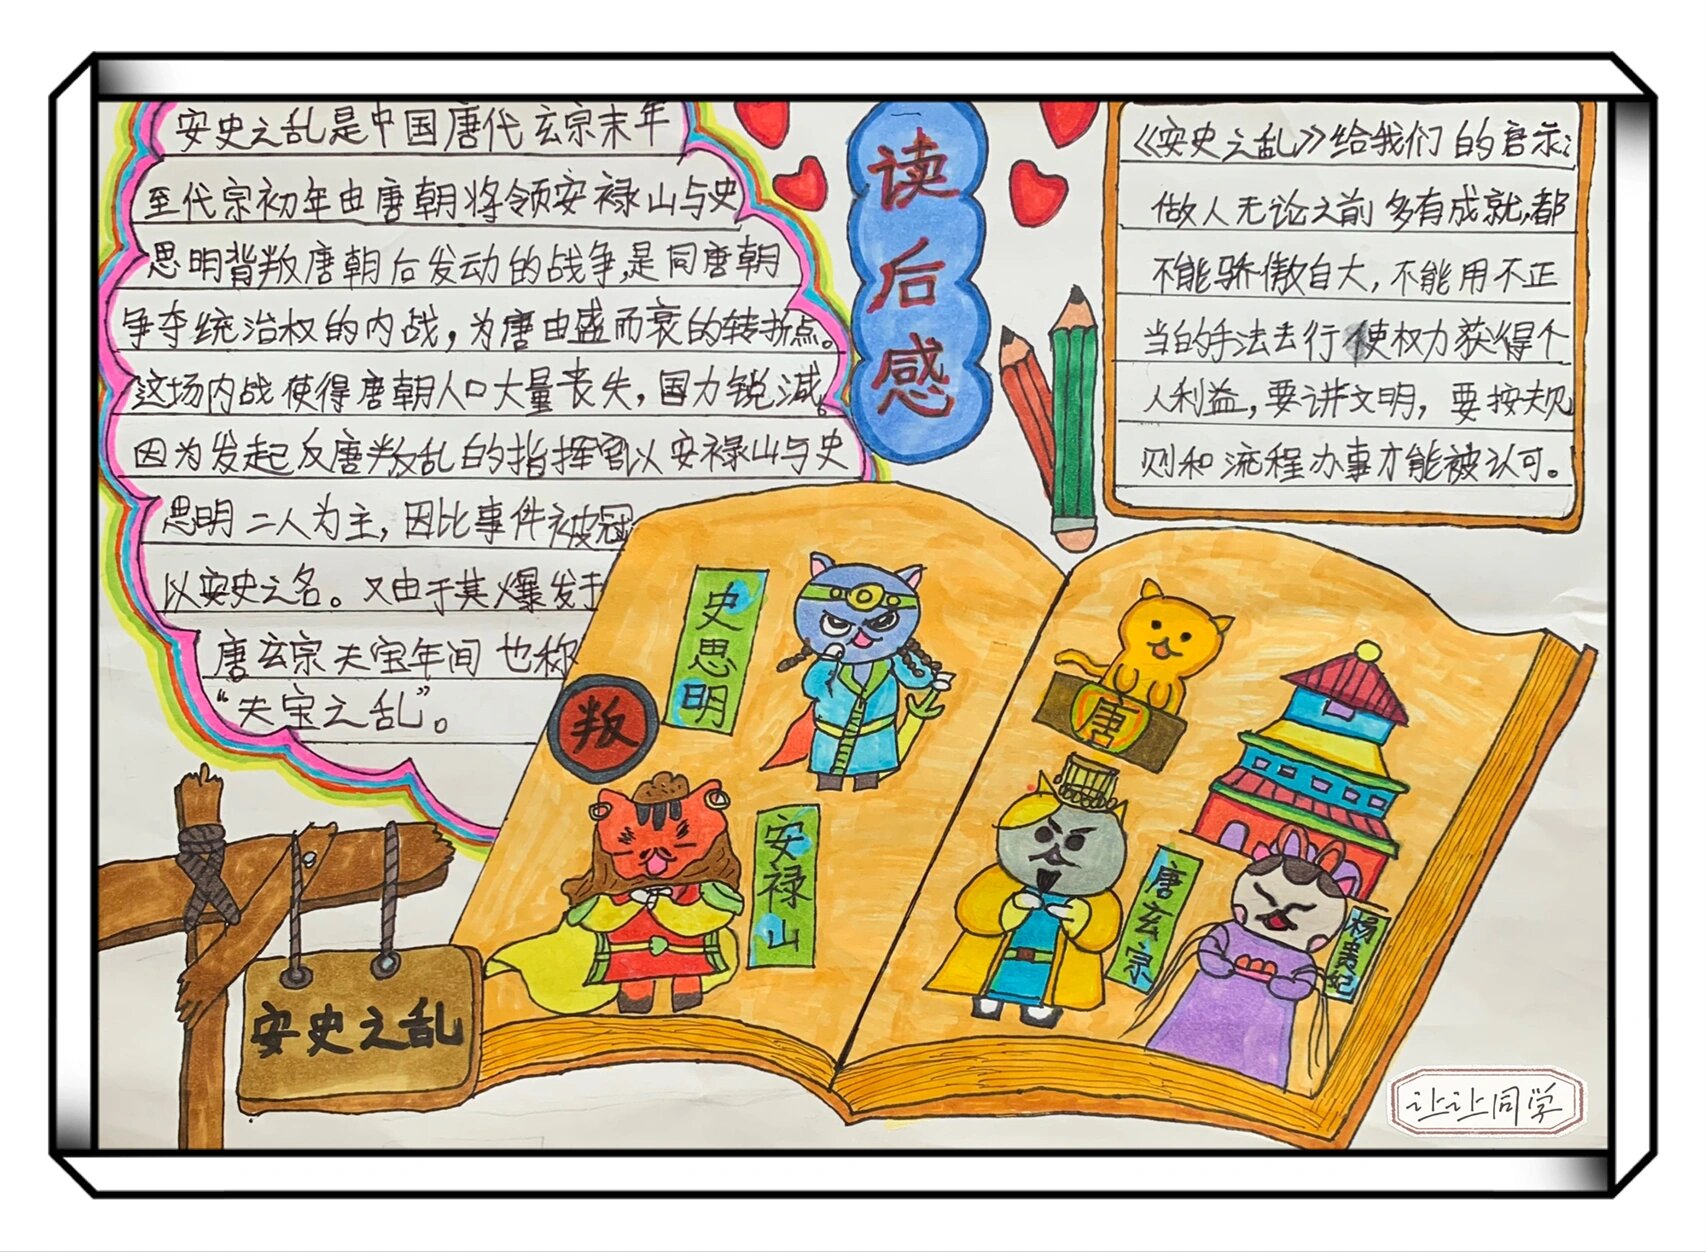 安史之乱是中国唐代玄宗末年
至代宗初年由唐朝将领安禄山与史
思明背叛唐朝后发动的战争,是同唐朝
争夺统治权的内战,为唐由盛而衰的转折点。
这场内战使得唐朝人口大量丧失,国力锐减。
因为发起反唐叛乱的指挥官以安禄山与史
思明二人为主,因比事件被冠
以安史之名。又由于其爆发于
唐玄宗天宝年间也称
“天宝之乱”。
读后感
《安史之乱》给我们的启示:
做人无论之前多有成就,都
不能骄傲自大,不能用不正
当的手法去行使权力获得个
人利益,要讲文明,要按规
则和流程办事才能被认可。
史思明
叛
安禄山
唐
唐玄宗
杨贵妃
安史之乱
让让同学